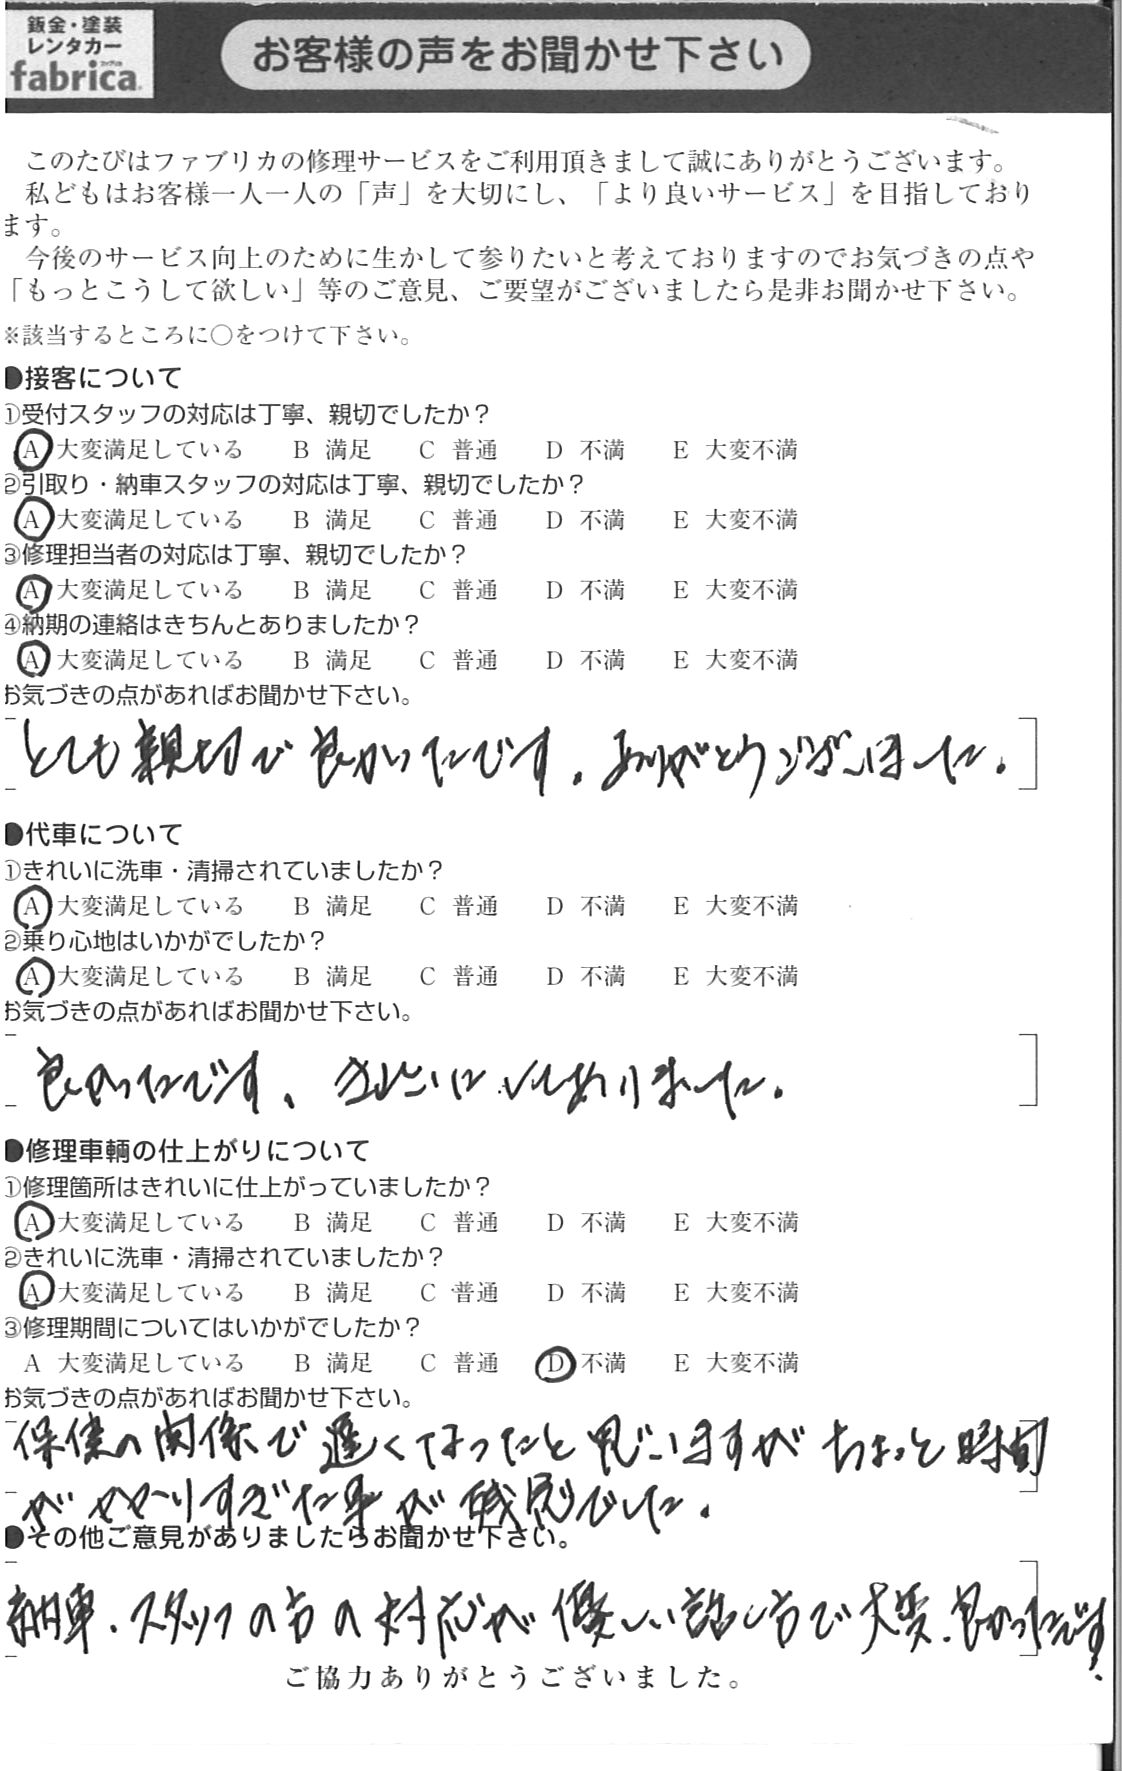 鈑金・塗装
レンタカー
ファブリカ
fabrica.
お客様の声をお聞かせ下さい
このたびはファブリカの修理サービスをご利用頂きまして誠にありがとうございます。
私どもはお客様一人一人の「声」を大切にし、「より良いサービス」を目指しており
ます。
今後のサービス向上のために生かして参りたいと考えておりますのでお気づきの点や
「もっとこうして欲しい」等のご意見、ご要望がございましたら是非お聞かせ下さい。
※該当するところに○をつけて下さい。
●接客について
①受付スタッフの対応は丁寧、親切でしたか？
A 大変満足している B 満足 C 普通 D 不満 E 大変不満
②引取り・納車スタッフの対応は丁寧、親切でしたか？
A 大変満足している B 満足 C 普通 D 不満 E 大変不満
③修理担当者の対応は丁寧、親切でしたか？
A 大変満足している B 満足 C 普通 D 不満 E 大変不満
④納期の連絡はきちんとありましたか？
A 大変満足している B 満足 C 普通 D 不満 E 大変不満
お気づきの点があればお聞かせ下さい。
とても親切で良かったです。ありがとうございました。
●代車について
①きれいに洗車・清掃されていましたか？
A 大変満足している B 満足 C 普通 D 不満 E 大変不満
②乗り心地はいかがでしたか？
A 大変満足している B 満足 C 普通 D 不満 E 大変不満
お気づきの点があればお聞かせ下さい。
良かったです、きれいにしてありました。
●修理車輌の仕上がりについて
①修理箇所はきれいに仕上がっていましたか？
A 大変満足している B 満足 C 普通 D 不満 E 大変不満
②きれいに洗車・清掃されていましたか？
A 大変満足している B 満足 C 普通 D 不満 E 大変不満
③修理期間についてはいかがでしたか？
A 大変満足している B 満足 C 普通 D 不満 E 大変不満
お気づきの点があればお聞かせ下さい。
保険の関係で遅くなったと思いますがちょっと時間
がかかりすぎた事が残念でした。
●その他ご意見がありましたらお聞かせ下さい。
納車・スタッフの方の対応が優しい話し方で大変、良かったです。
ご協力ありがとうございました。